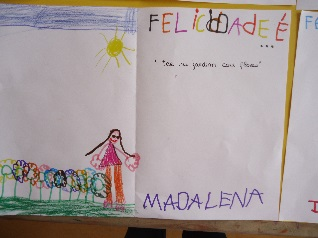 FELICIDADE É
...
"ter um jardim com flores"
MADALENA